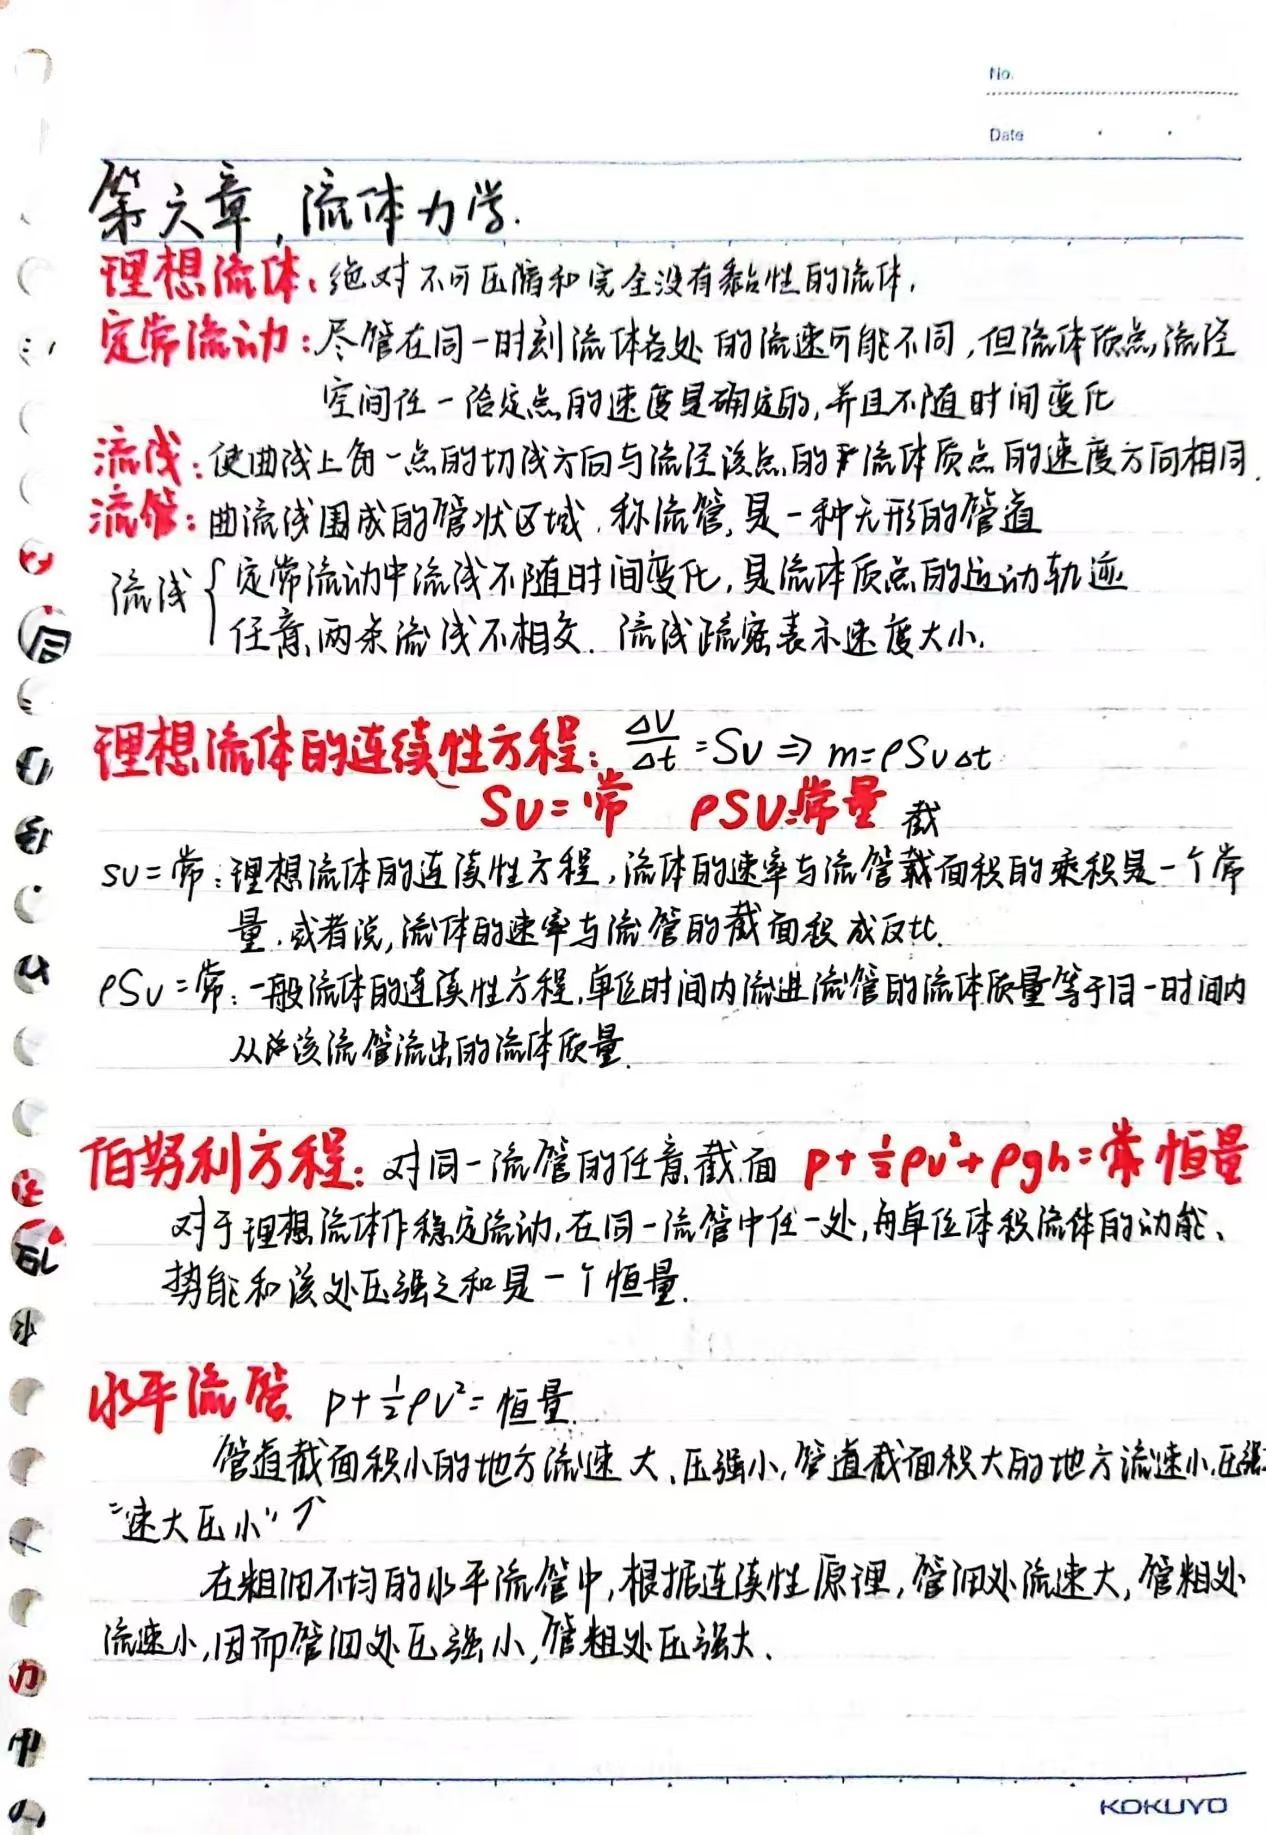 No.
Date
第六章，流体力学.
理想流体：绝对不可压缩和完全没有黏性的流体.
定常流动：尽管在同一时刻流体各处的流速可能不同,但流体质点流径
空间任一给定点的速度是确定的,并且不随时间变化
流线：使曲线上每一点的切线方向与流径该点的流体质点的速度方向相同.
流管：曲流线围成的管状区域.称流管,是一种无形的管道
流线{定常流动中流线不随时间变化,是流体质点的运动轨迹
任意两条流线不相交.流线疏密表示速度大小.
理想流体的连续性方程：ΔV/Δt=Sv⇒m=ρSvΔt
Sv=常 ρSv=常量
截
sv=常:理想流体的连续性方程,流体的速率与流管截面积的乘积是一个常
量.或者说,流体的速率与流管的截面积成反比.
ρSv=常:一般流体的连续性方程,单位时间内流进流管的流体质量等于同一时间内
从该流管流出的流体质量.
伯努利方程：对同一流管的任意截面 p+½ρv²+ρgh=常 恒量
对于理想流体作稳定流动,在同一流管中任一处,每单位体积流体的动能、
势能和该处压强之和是一个恒量.
水平流管 p+½ρv²=恒量.
管道截面积小的地方流速大、压强小,管道截面积大的地方流速小,压强
"速大压小"
在粗细不均的水平流管中,根据连续性原理,管细处流速大,管粗处
流速小,因而管细处压强小,管粗处压强大.
KOKUYO